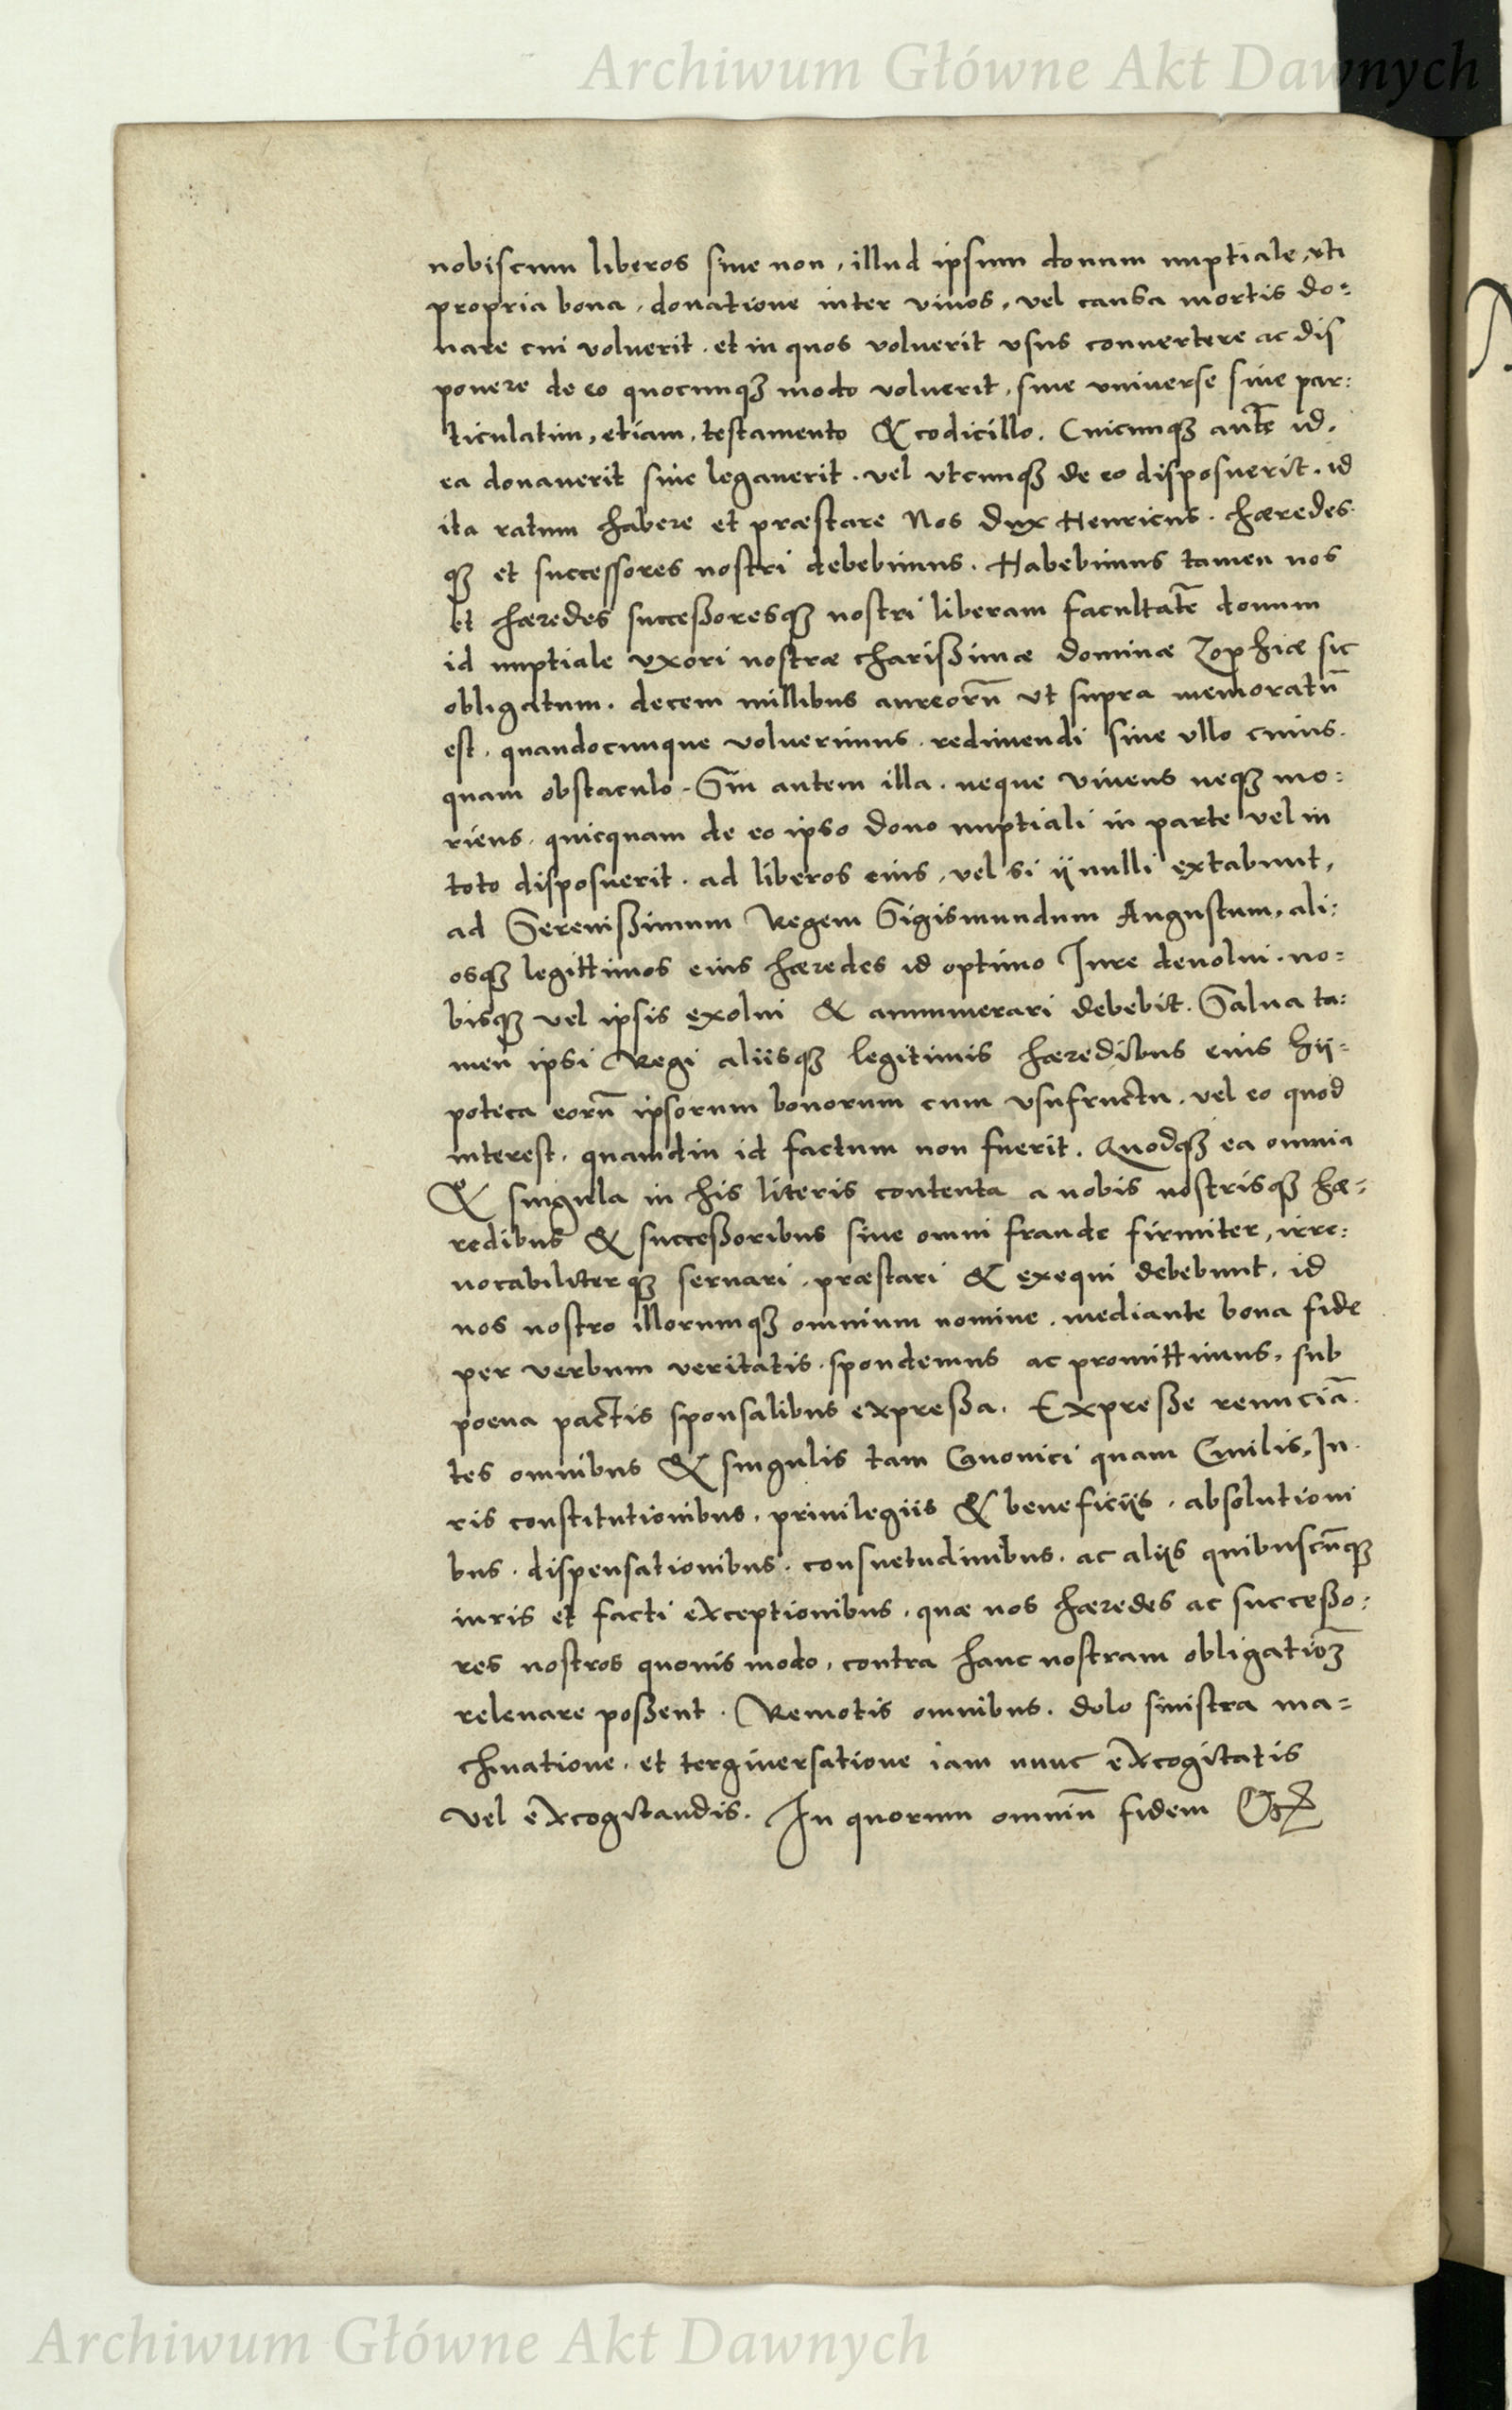 Archiwum Główne Akt Dawnych
nobiscum liberos siue non, illud ipsum donum nuptiale, vti
propria bona, donatione inter viuos, vel causa mortis do=
nare cui voluerit. et in quos voluerit vsus conuertere ac dis
ponere de eo quocunqȝ modo voluerit, siue vniuerse siue par:
ticulatim, etiam, testamento & codicillo. Cuicunqȝ aute͂ id,
ea donauerit siue legauerit. vel vtcunqȝ de eo disposuerit. id
ita ratum habere et præstare Nos Dux Henricus. hæredes
qȝ et successores nostri debebimus. Habebimus tamen nos
et hæredes successoresqȝ nostri liberam facultate͂ donum
id nuptiale vxori nostræ charissimæ dominæ Zophiæ sic
obligatum. decem millibus aureoru͂ vt supra memoratu͂
est. quandocunque voluerimus. redimendi siue vllo cuius.
quam obstaculo. Sin autem illa. neque viuens neqȝ mo:
riens. quicquam de eo ipso dono nuptiali in parte vel in
toto disposuerit. ad liberos eius, vel si ij nulli extabunt,
ad Serenissimum Regem Sigismundum Augustum, ali:
osqȝ legittimos eius hæredes id optimo Iure deuolui. no=
bisqȝ vel ipsis exolui & annumerari debebit. Salua ta:
men ipsi Regi aliisqȝ legitimis hæredibus eius hÿ=
poteca eoru͂ ipsorum bonorum cum vsufructu. vel eo quod
interest. quamdiu id factum non fuerit. Quodqȝ ea omnia
& singula in his literis contenta a nobis nostrisqȝ hæ=
redibus & successoribus sine omni fraude firmiter, irre:
uocabiliterqȝ seruari. præstari & exequi debebunt. id
nos nostro illorumqȝ omnium nomine. mediante bona fide
per verbum veritatis. spondemus ac promittimus, sub
poena pactis sponsalibus expressa. Expresse renuncia͂
tes omnibus & singulis tam Canonici quam Ciuilis, Iu
ris constitutionibus, priuilegiis & beneficijs. absolutioni
bus. dispensationibus. consuetudinibus. ac alijs quibuscu͂qȝ
iuris et facti exceptionibus. quæ nos hæredes ac successo:
res nostros quouis modo, contra hanc nostram obligatio͂ȝ
releuare possent. Remotis omnibus. dolo sinistra ma=
chinatione. et tergiuersatione iam nunc excogitatis
vel excogitandis. In quorum omniu͂ fidem &c
Archiwum Główne Akt Dawnych